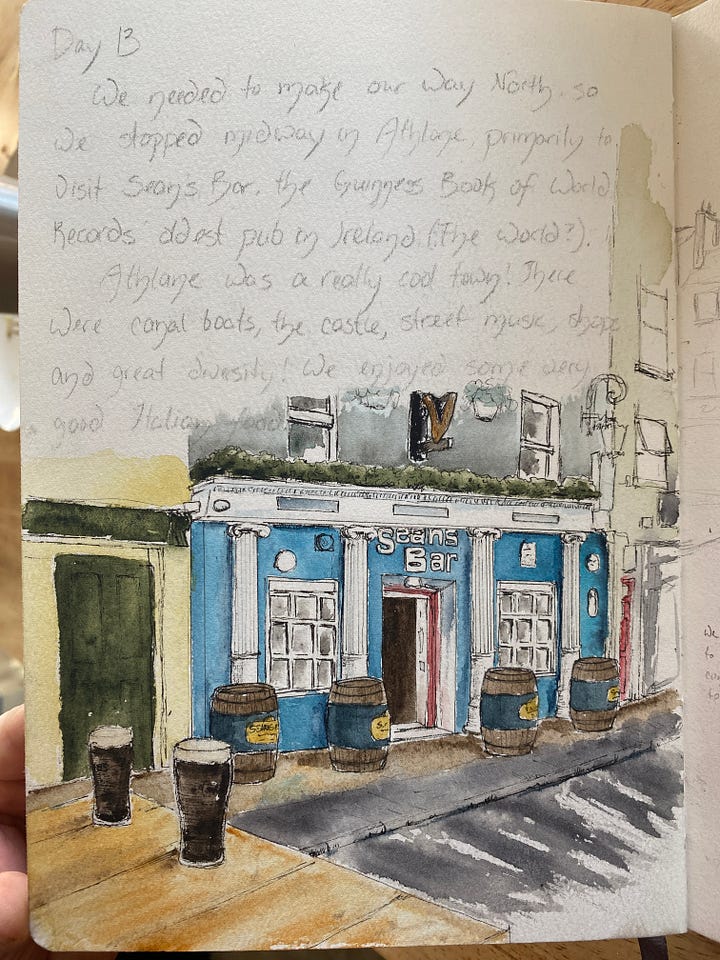 Day 13
We needed to make our way North, so
we stopped midway in Athlone, primarily to
visit Sean's Bar, the Guinness Book of World
Records' oldest pub in Ireland (The World?).
Athlone was a really cool town! There
were canal boats, the castle, street music, shops
and great diversity! We enjoyed some very
good Italian food.
Seans
Bar
We
to